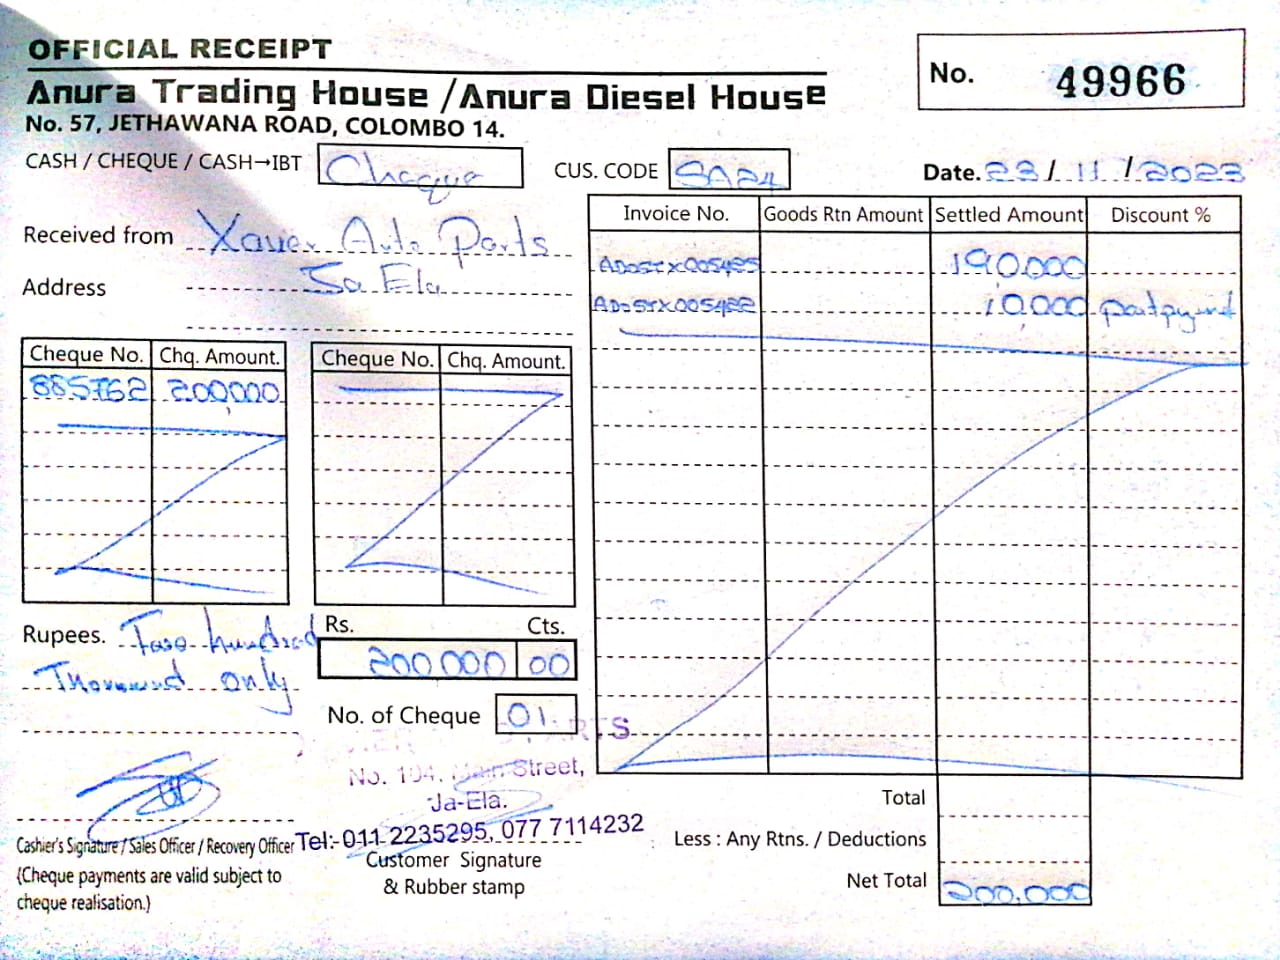 OFFICIAL RECEIPT
Anura Trading House / Anura Diesel House
No. 57, JETHAWANA ROAD, COLOMBO 14.
No. 49966
CASH / CHEQUE / CASH→IBT Cheque
CUS. CODE SA24
Date. 23 / 11 / 2023
Received from Xavier Auto Parts
Address Ja Ela
Invoice No. Goods Rtn Amount Settled Amount Discount %
190,000
10,000 part payment
Cheque No. Chq. Amount. Cheque No. Chq. Amount.
885762 200,000
Rupees. Two hundred
Thousand only
Rs. Cts.
200 000 00
No. of Cheque 01
No. 104, Main Street,
Ja-Ela.
Tel:- 011 2235295, 077 7114232
Cashier's Signature / Sales Officer / Recovery Officer
(Cheque payments are valid subject to
cheque realisation.)
Customer Signature
& Rubber stamp
Total
Less : Any Rtns. / Deductions
Net Total 200,000